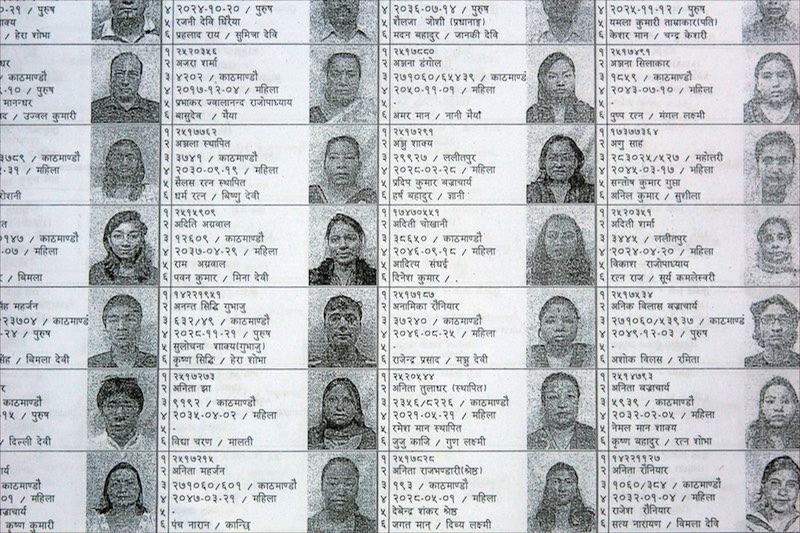 ०-२१ / पुरुष
/ हेरा शोभा
४ २०२४-१०-२० / पुरुष
५ रजनी देवि घिरैया
६ प्रहलाद राय / सुमित्रा देवि
४ २०३६-०७-१४ / पुरुष
५ शैलजा जोशी (प्रधानाङ्ग)
६ मदन बहादुर / जानकी देवि
४ २०२५-११-१२ / पुरुष
५ यमला कुमारी ताम्राकार(पति)
६ केशर मान / चन्द्र केशरी
/ काठमाण्डौ
-१० / पुरुष
मानन्धर
/ उज्वल कुमारी
१ २५२०३५६
२ अजरा शर्मा
३ ४२०२ / काठमाण्डौ
४ २०१७-१२-०४ / महिला
५ प्रभाकर ज्वालानन्द राजोपाध्याय
६ बासुदेव / मैया
१ २५१७८८०
२ अञ्जना डंगोल
३ २७१०६०/६५४३९ / काठमाण्डौ
४ २०५०-११-०१ / महिला
५ -
६ अमर मान / नानी मैयाँ
१ २५१७४९१
२ अञ्जना सिलाकार
३ १८५९ / काठमाण्डौ
४ २०४३-०७-१० / महिला
५ -
६ पुष्प रत्न / मंगल लक्ष्मी
३७८९ / काठमाण्डौ
-३१ / महिला
रोशनी
१ २५१७७६२
२ अञ्जला स्थापित
३ ३७४१ / काठमाण्डौ
४ २०३०-०९-१९ / महिला
५ सैलस रत्न स्थापित
६ धर्म रत्न / बिष्णु देवी
१ २५१७२९१
२ अञ्जु शाक्य
३ २९९२७ / ललीतपुर
४ २०२८-०२-२८ / महिला
५ प्रदिप कुमार बज्राचार्य
६ हर्ष बहादुर / ज्ञानी
१ १७३७७३६४
२ अणु साह
३ २८३०२५/५२७ / महोत्तरी
४ २०४५-०३-१७ / महिला
५ सन्तोष कुमार गुप्ता
६ अनिल कुमार / सुशीला
०१४७ / काठमाण्डौ
-०७ / महिला
/ बिमला
१ २५१५९०९
२ अदिति अग्रवाल
३ १२६०९ / काठमाण्डौ
४ २०३७-०४-२९ / महिला
५ राम अग्रवाल
६ पवन कुमार / मिना देवी
१ १७४७०५५१
२ अदिती चोखानी
३ ३८६५० / काठमाण्डौ
४ २०४६-०९-१८ / महिला
५ आदित्य संघई
६ दिनेश कुमार / .
१ २५२०३५१
२ अदिती शर्मा
३ ३४४५ / ललीतपुर
४ २०२४-०४-२० / महिला
५ विकाश राजोपाध्याय
६ रत्न राज / सूर्य कमलेस्वरी
सिंह महर्जन
२३७०४ / काठमाण्डौ
-२४ / पुरुष
सिंह / बिमला देवी
१ १४२२१९५१
२ अनन्त सिद्धि गुभाजु
३ ६३२/४९ / काठमाण्डौ
४ २०२८-११-२१ / पुरुष
५ सुलोचना शाक्य(गुभाजु)
६ कृष्ण सिद्धि / हेरा शोभा
१ २५१७१८७
२ अनामिका रौनियार
३ ३७२४० / काठमाण्डौ
४ २०४६-०८-२५ / महिला
५ -
६ राजेन्द्र प्रसाद / मञ्जु देवी
१ २५१७५३४
२ अनिक बिलास बज्राचार्य
३ २७१०६०/५३९३७ / काठमाण्डौ
४ २०४९-१२-०३ / पुरुष
५ -
६ अशोक बिलस / रमिता
/ काठमाण्डौ
-१५ / पुरुष
/ दिल्ली देवी
१ २५१७२७३
२ अनिता झा
३ ९१९२ / काठमाण्डौ
४ २०३५-०४-०२ / महिला
५ -
६ विद्या चरण / मालती
१ २५२०५४४
२ अनिता तुलाधर (स्थापित)
३ २३५६/८२२६ / काठमाण्डौ
४ २०२१-०५-२१ / महिला
५ रमेश मान स्थापित
६ जुजु काजि / गुण लक्ष्मी
१ २५१४७९३
२ अनिता बज्राचार्य
३ ५९३९ / काठमाण्डौ
४ २०३२-०२-०५ / महिला
५ नेमल मान शाक्य
६ कृष्ण बहादुर / रत्न शोभा
/ काठमाण्डौ
०१ / महिला
/ कृष्ण कुमारी
१ २५१७२१५
२ अनिता महर्जन
३ २७१०६०/६०१ / काठमाण्डौ
४ २०४७-०३-२१ / महिला
५ -
६ पंच नारान / कान्छि
१ २५१७८२८
२ अनिता राजभण्डारी(श्रेष्ठ)
३ १९३ / काठमाण्डौ
४ २०२८-०५-०१ / महिला
५ देबेन्द्र शंकर श्रेष्ठ
६ जगत मान / दिव्य लक्ष्मी
१ १४२२११२७
२ अनिता रौनियार
३ १०६०/३८४ / काठमाण्डौ
४ २०३२-०१-०४ / महिला
५ राजेश रौनियार
६ सत्य नारायण / बिमला देवि